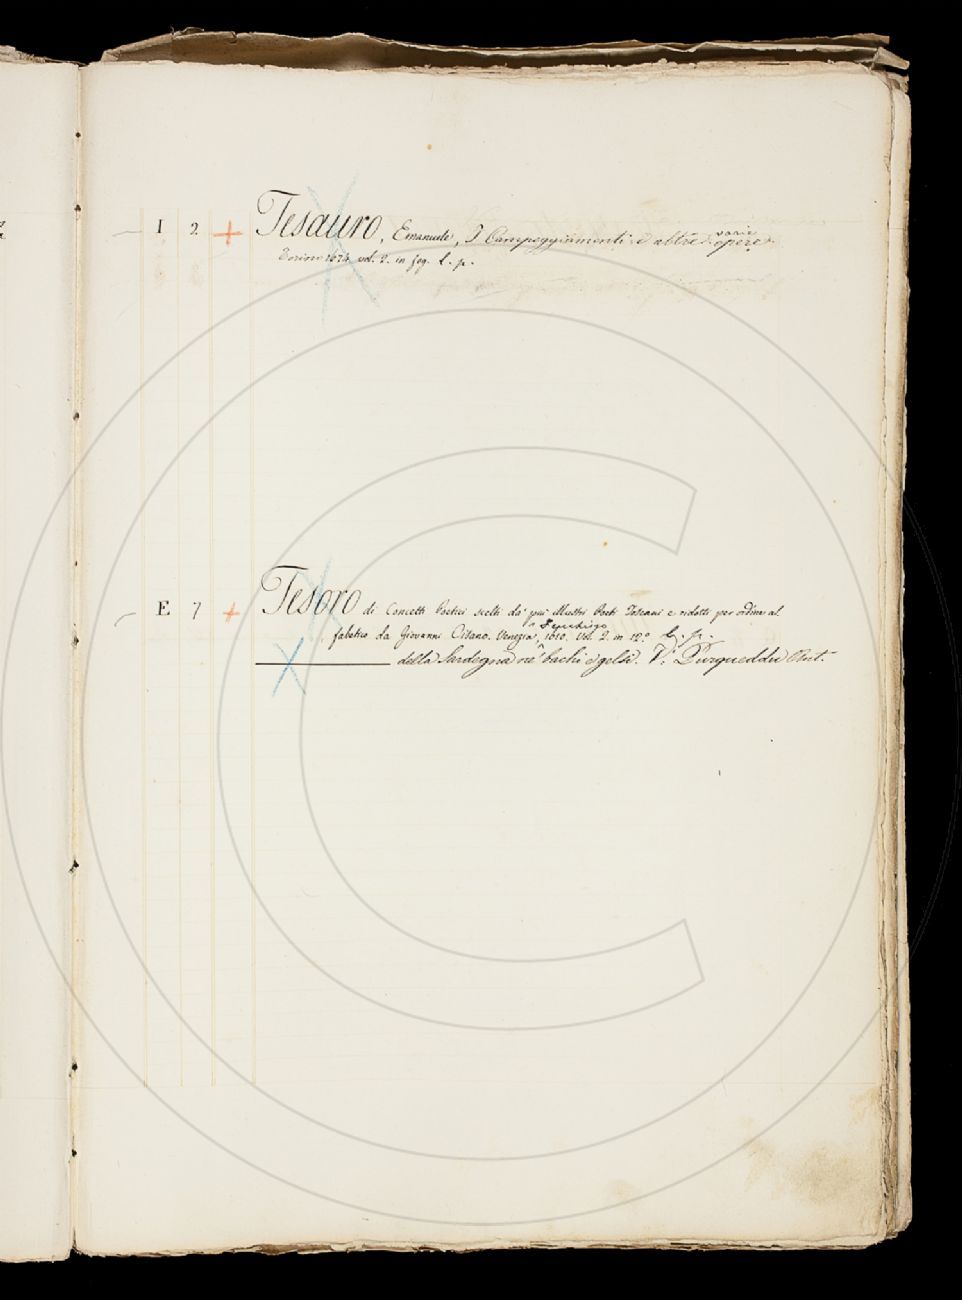 I 2 + Tesauro, Emanuele, I Campeggiamenti e altre varie opere
Torino 1674 vol. 2. in fog. l. p.
E 7 + Tesoro di Concetti Poetici scelti da' più illustri Poeti Toscani e ridotti per ordine al
fabetico da Giovanni Cisano. Venezia, Deuchino 1610. Vol. 2. in 12.º l. p.
della Sardegna ne' bachi e gelsi. V. Purqueddu Ant.